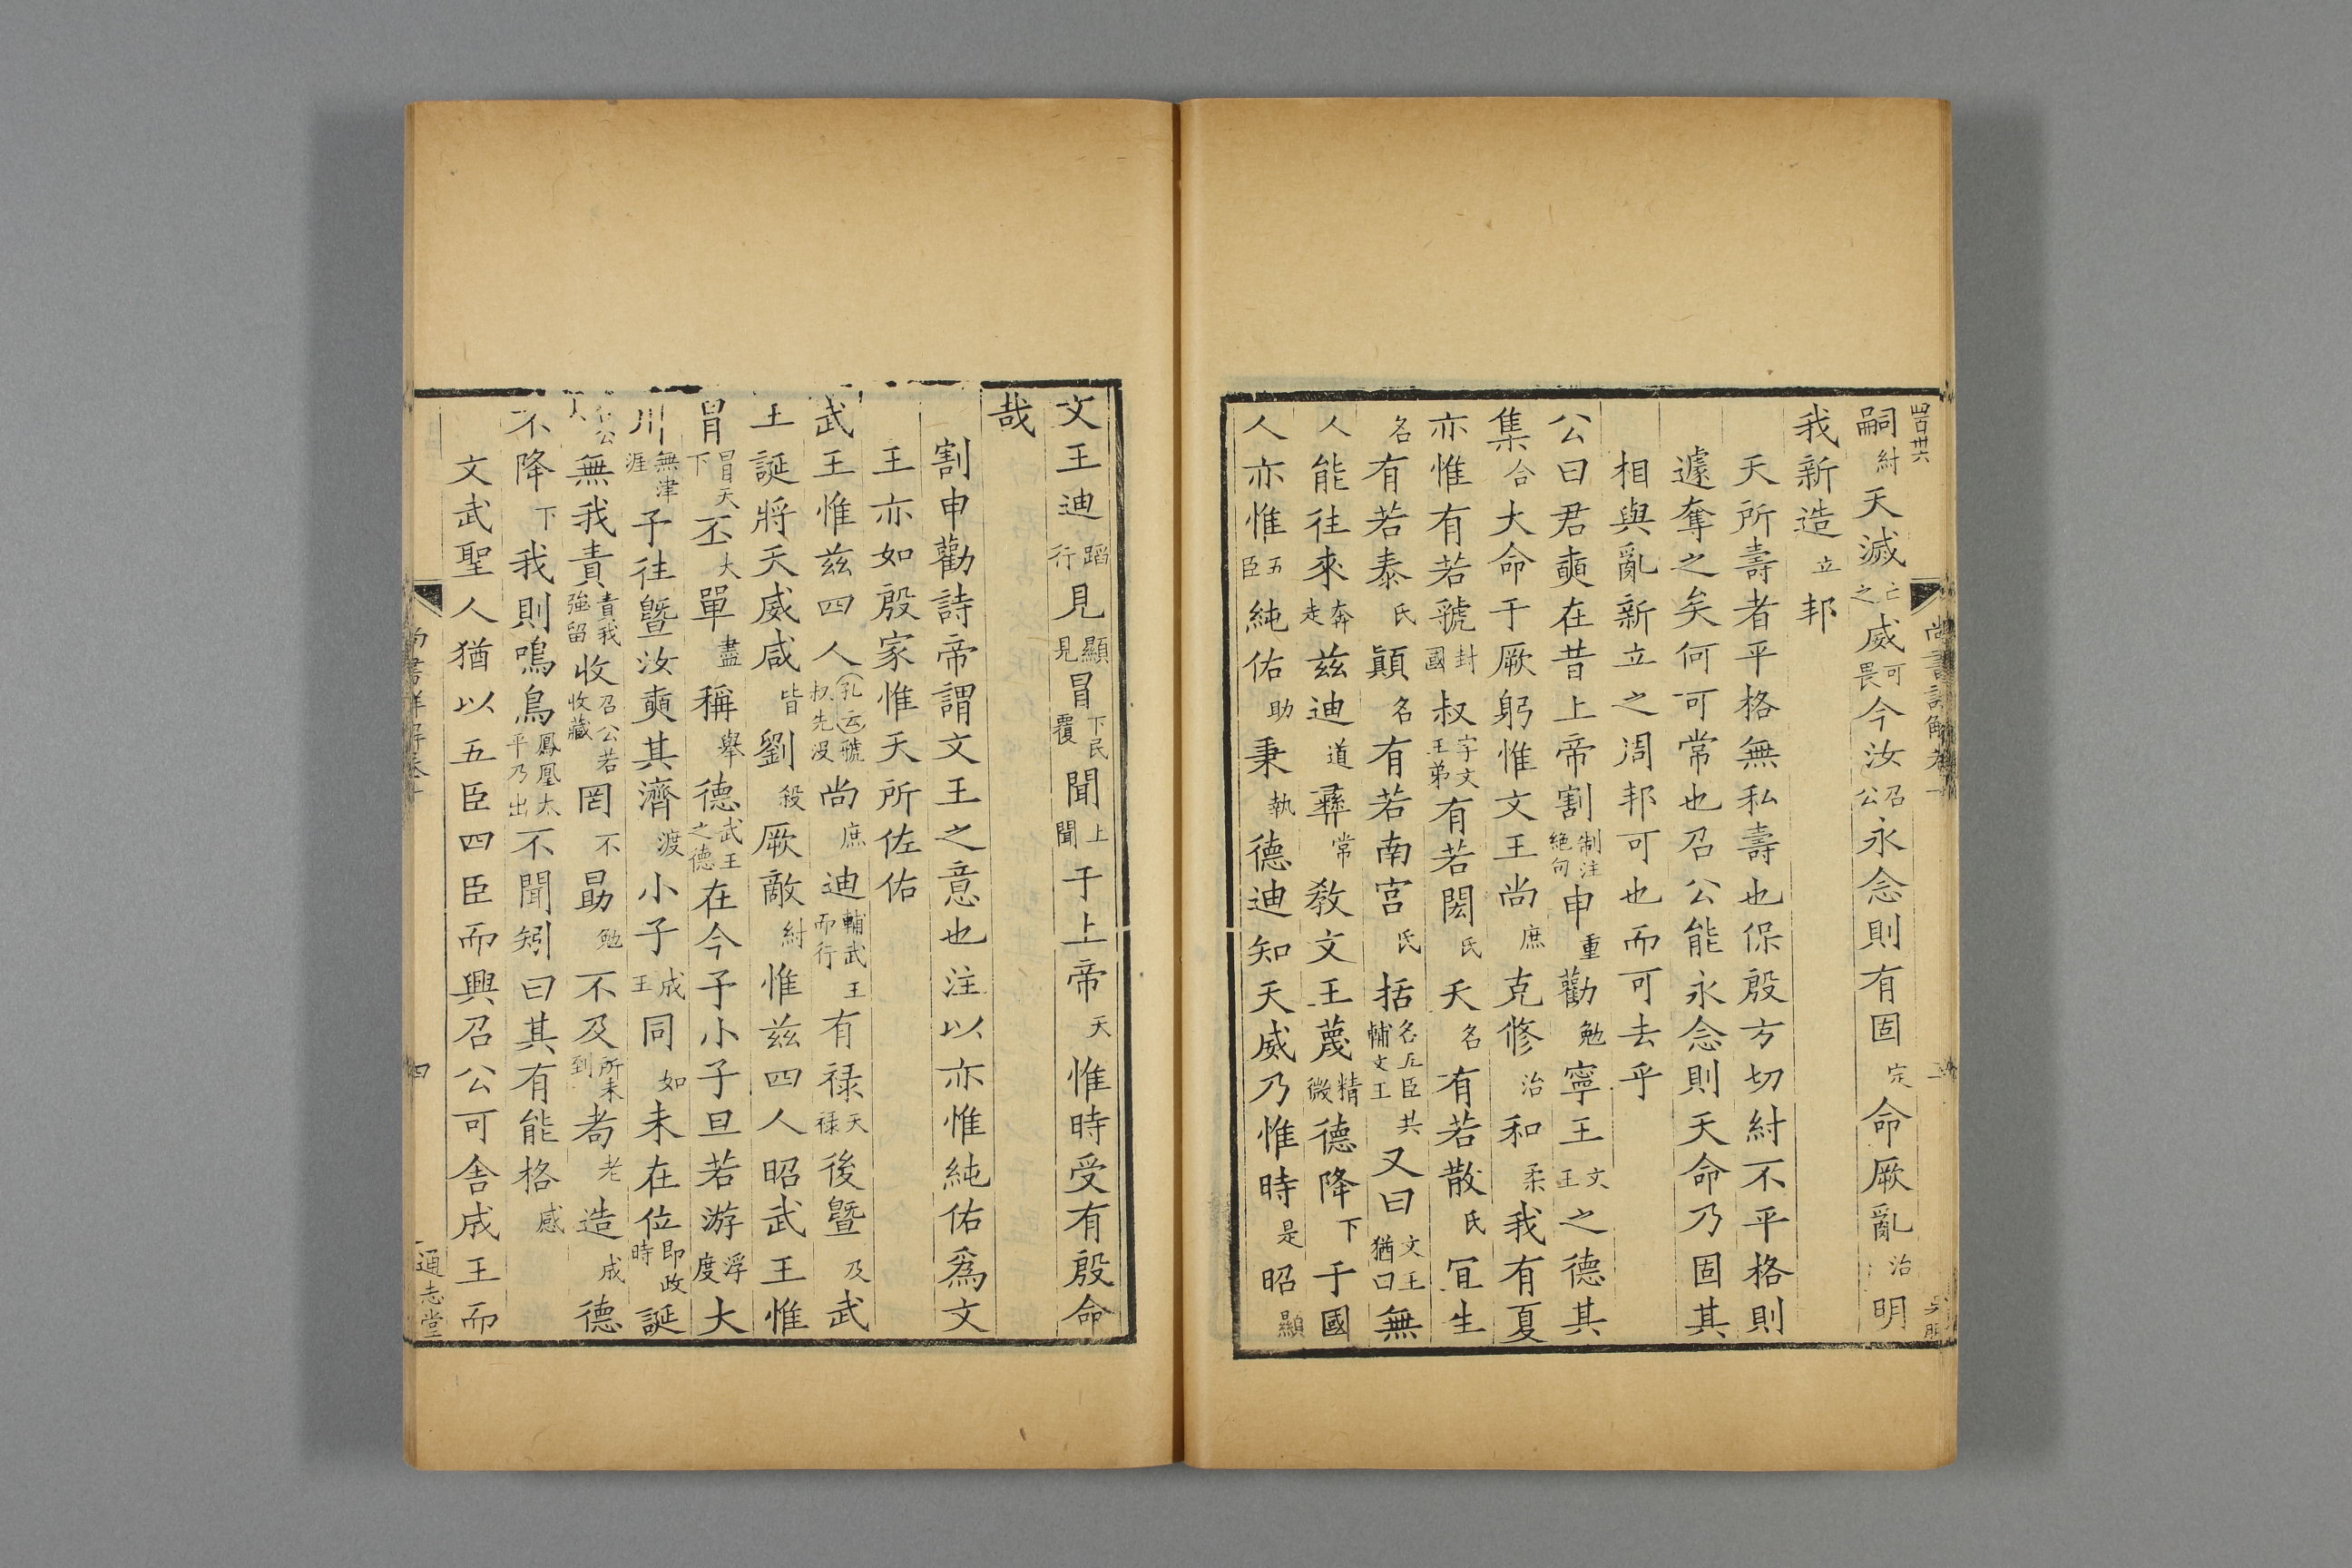 嗣紂天滅亡之威可畏今汝召公永念則有固定命厥亂治明
我新造立邦
天所壽者平格無私壽也保殷方切紂不平格則
遽奪之矣何可常也召公能永念則天命乃固其
相與亂新立之周邦可也而可去乎
公曰君奭在昔上帝割制注絶句申重勸勉寧王文王之德其
集合大命于厥躬惟文王尚庶克修治和柔我有夏
亦惟有若虢封國叔字文王弟有若閎氏夭名有若散氏宜生
名有若泰氏顚名有若南宮氏括名五臣共輔文王又曰文王猶曰無
人能往來奔走茲迪道彞常教文王蔑精微德降下于國
人亦惟五臣純佑助秉執德迪知天威乃惟時是昭顯
文王迪蹈行見顯見冒下民覆聞上聞于上帝天惟時受有殷命
哉
割申勸詩帝謂文王之意也注以亦惟純佑爲文
王亦如殷家惟天所佐佑
武王惟茲四人孔云虢叔先沒尚庶迪輔武王而行有祿天祿後曁及武
王誕將天威咸皆劉殺厥敵紂惟茲四人昭武王惟
冒冒天下丕大單盡稱舉德武王之德在今予小子旦若游浮度大
川無津涯予往曁汝奭其濟渡小子成王同如未在位即政時誕
無我責責我強留收召公若收藏罔不勗勉不及所未到耇老造成德
不降下我則鳴鳥鳳凰太平乃出不聞矧曰其有能格感
文武聖人猶以五臣四臣而興召公可舍成王而
尚書詳解卷十
四
通志堂